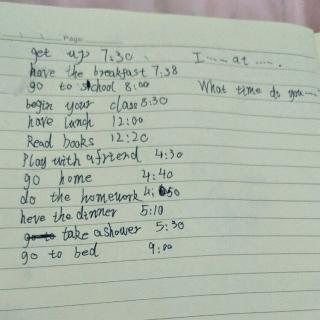 Page
get up 7:30
I .... at .....
have the breakfast 7:38
go to school 8:00
What time do you ....
begin your class 8:30
have lunch 12:00
Read books 12:20
Play with a friend 4:30
go home 4:40
do the homework 4:50
heve the dinner 5:10
go to take a shower 5:30
go to bed 9:00